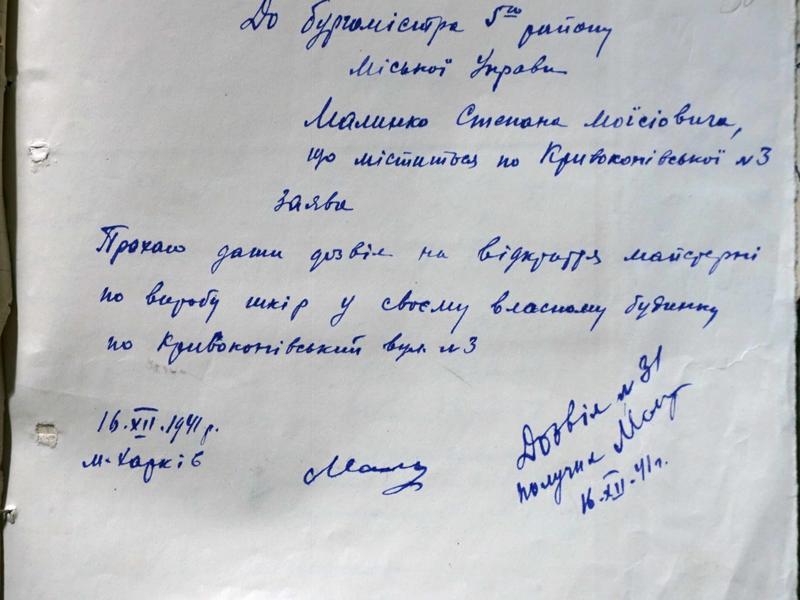 До бургомістра 5го району
Міської Управи
Малинко Степана Мойсіовича,
що міститься по Кривоконівської №3
Заява
Прохаю дати дозвіл на відкриття майстерні
по виробу шкір у своєму власному будинку
по Кривоконівський вул. №3
16.XII.1941 р.
м. Харків
Дозвіл №31
получив
16.XII.41 г.